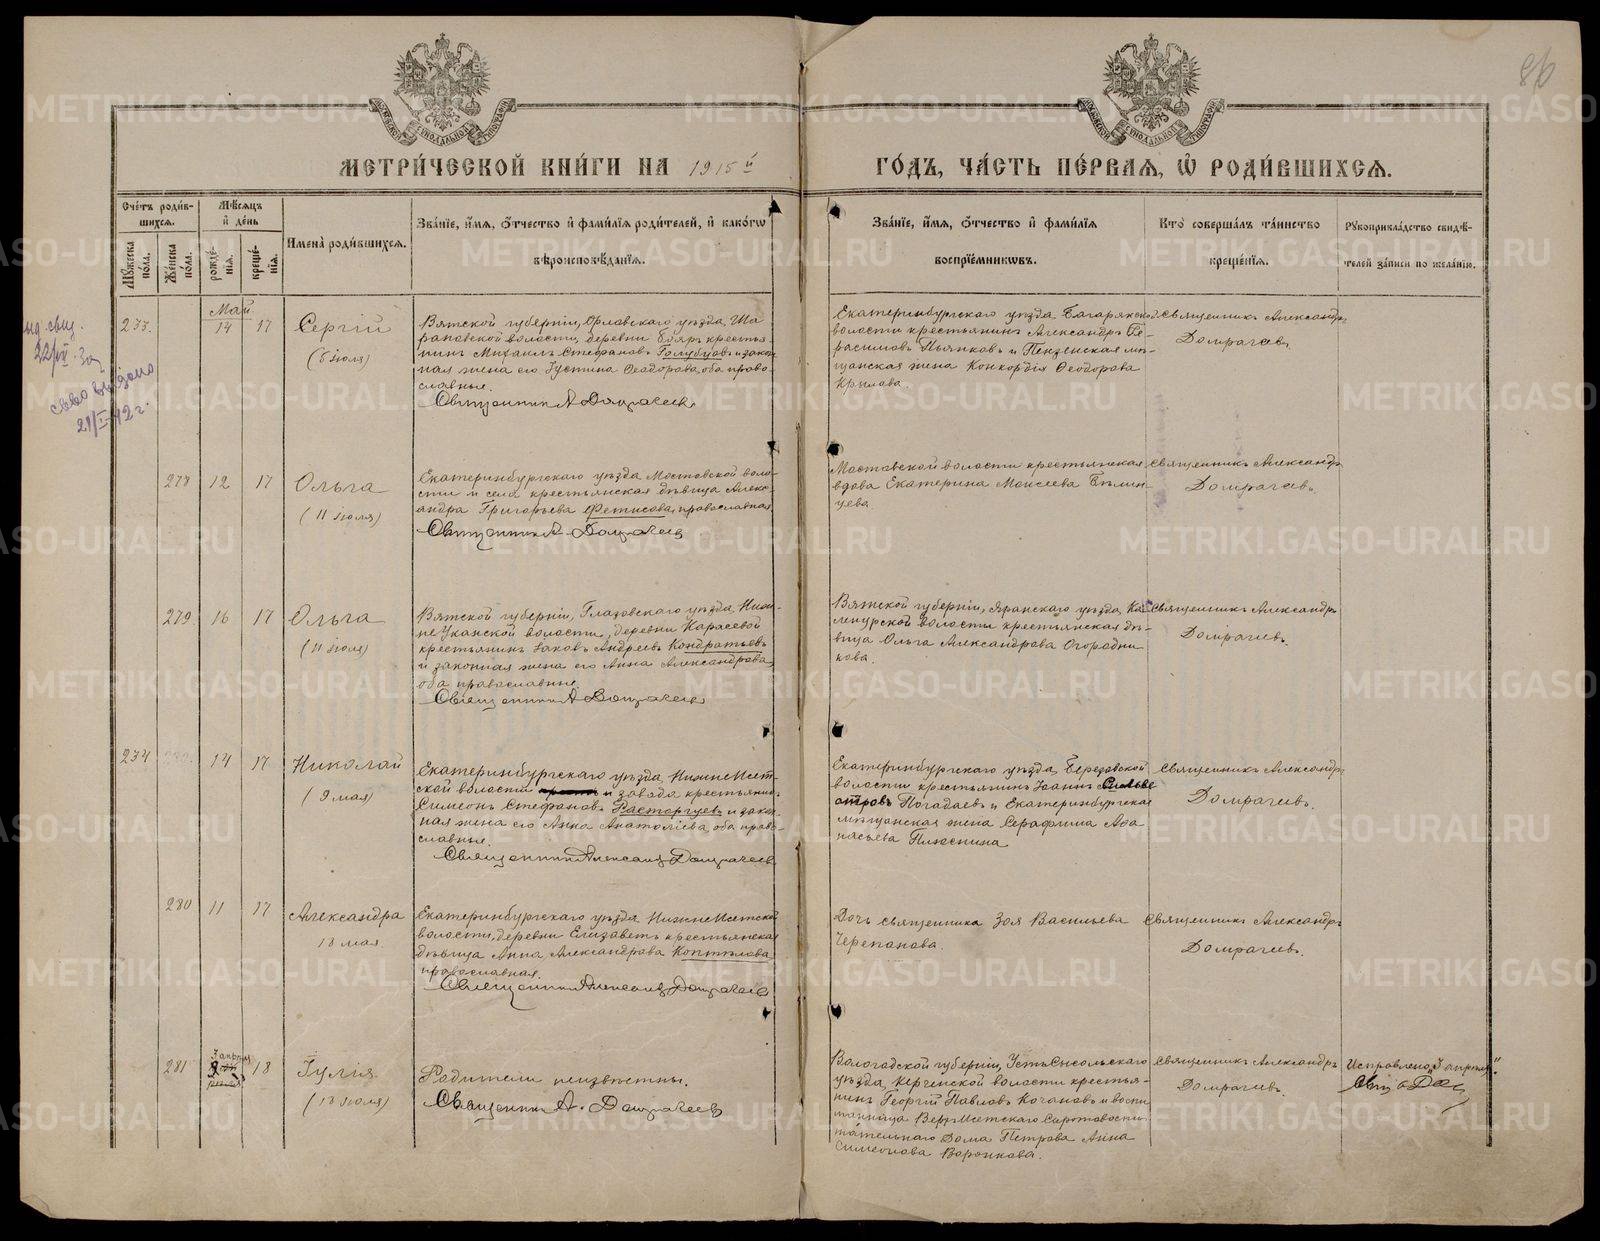 86
МЕТРИ́ЧЕСКОЙ КНИ́ГИ НА 1915й ГО́ДЪ, ЧА́СТЬ ПЕ́РВАЯ, Ѡ РОДИ́ВШИХСЯ.
Сче́тъ роди́в-
шихся.
Му́жеска по́ла.
Же́нска по́ла.
Мѣ́сяцъ и де́нь
рожде́нія.
креще́нія.
Имена̀ роди́вшихся.
Зва́ніе, и́мя, о́тчество и фами́лія роди́телей, и како́гѡ
вѣроисповѣ́данія.
Зва́ніе, и́мя, о́тчество и фами́лія
воспріе́мникѡвъ.
Кто̀ соверша́лъ та́инство
креще́нія.
Рукоприкла́дство свидѣ́-
телей за́писи по жела́нію.
Май
233. 14 17 Сергій
(8 іюля)
Вятской губерніи, Орловскаго уѣзда, Ша-
рановской волости, деревни Бояръ крестья-
нинъ Михаилъ Стефановъ Голубцовъ и закон-
ная жена его Іустина Ѳеодорова, оба право-
славные.
Священникъ А Домрачевъ
Екатеринбургскаго уѣзда Багарякской
волости крестьянинъ Александръ Ге-
расимовъ Пьянковъ и Пензенская мѣ-
щанская жена Конкордія Ѳеодорова
Крылова.
Священникъ Александръ
Домрачевъ.
выдано
21/I 42 г.
278 12 17 Ольга
(11 іюля)
Екатеринбургскаго уѣзда Мостовской воло-
сти и села крестьянская дѣвица Алекс-
андра Григорьева Фетисова, православная
Священникъ А. Домрачевъ
Мостовской волости крестьянская
вдова Екатерина Моисеева Бѣлин-
цева
Священникъ Александръ
Домрачевъ.
279 16 17 Ольга
(11 іюля)
Вятской губерніи, Глазовскаго уѣзда, Ниж-
не Уканской волости, деревни Карасевой
крестьянинъ Іаковъ Андреевъ Кондратьевъ
и законная жена его Анна Александрова,
оба православные
Священникъ А Домрачевъ
Вятской губерніи, Яранскаго уѣзда, Ка-
ленурской волости крестьянская дѣ-
вица Ольга Александрова Огородни-
кова.
Священникъ Александръ
Домрачевъ.
234 14 17 Николай
(9 мая)
Екатеринбургскаго уѣзда Нижне Исет-
ской волости и завода крестьянинъ
Симеонъ Стефановъ Расторгуевъ и закон-
ная жена его Анна Анатоліева, оба право-
славные.
Священникъ Александръ Домрачевъ
Екатеринбургскаго уѣзда, Березовской
волости крестьянинъ Іоаннъ Сильве
стровъ Погадаевъ и Екатеринбургская
мѣщанская жена Серафима Аѳа-
насьева Плюснина
Священникъ Александръ
Домрачевъ.
280 11 17 Александра
18 мая.
Екатеринбургскаго уѣзда Нижне Исетской
волости, деревни Елизаветъ крестьянская
дѣвица Анна Александрова Коптѣлова,
православная.
Священникъ Александръ Домрачевъ
Дочь священника Зоя Васильева
Черепанова.
Священникъ Александръ
Домрачевъ.
281 3 апрѣля 18 Іулія
(18 іюля)
Родители неизвѣстны.
Священникъ А. Домрачевъ
Вологодской губерніи, Усть Сысольскаго
уѣзда, Керченской волости крестья-
нинъ Георгій Павловъ Кочановъ и воспи-
танница Верх Исетскаго Сиротовоспи-
тательнаго Дома Петрова Анна
Симеонова Воронкова.
Священникъ Александръ
Домрачевъ.
Исправлено „3 апрѣля".
METRIKI.GASO-URAL.RU